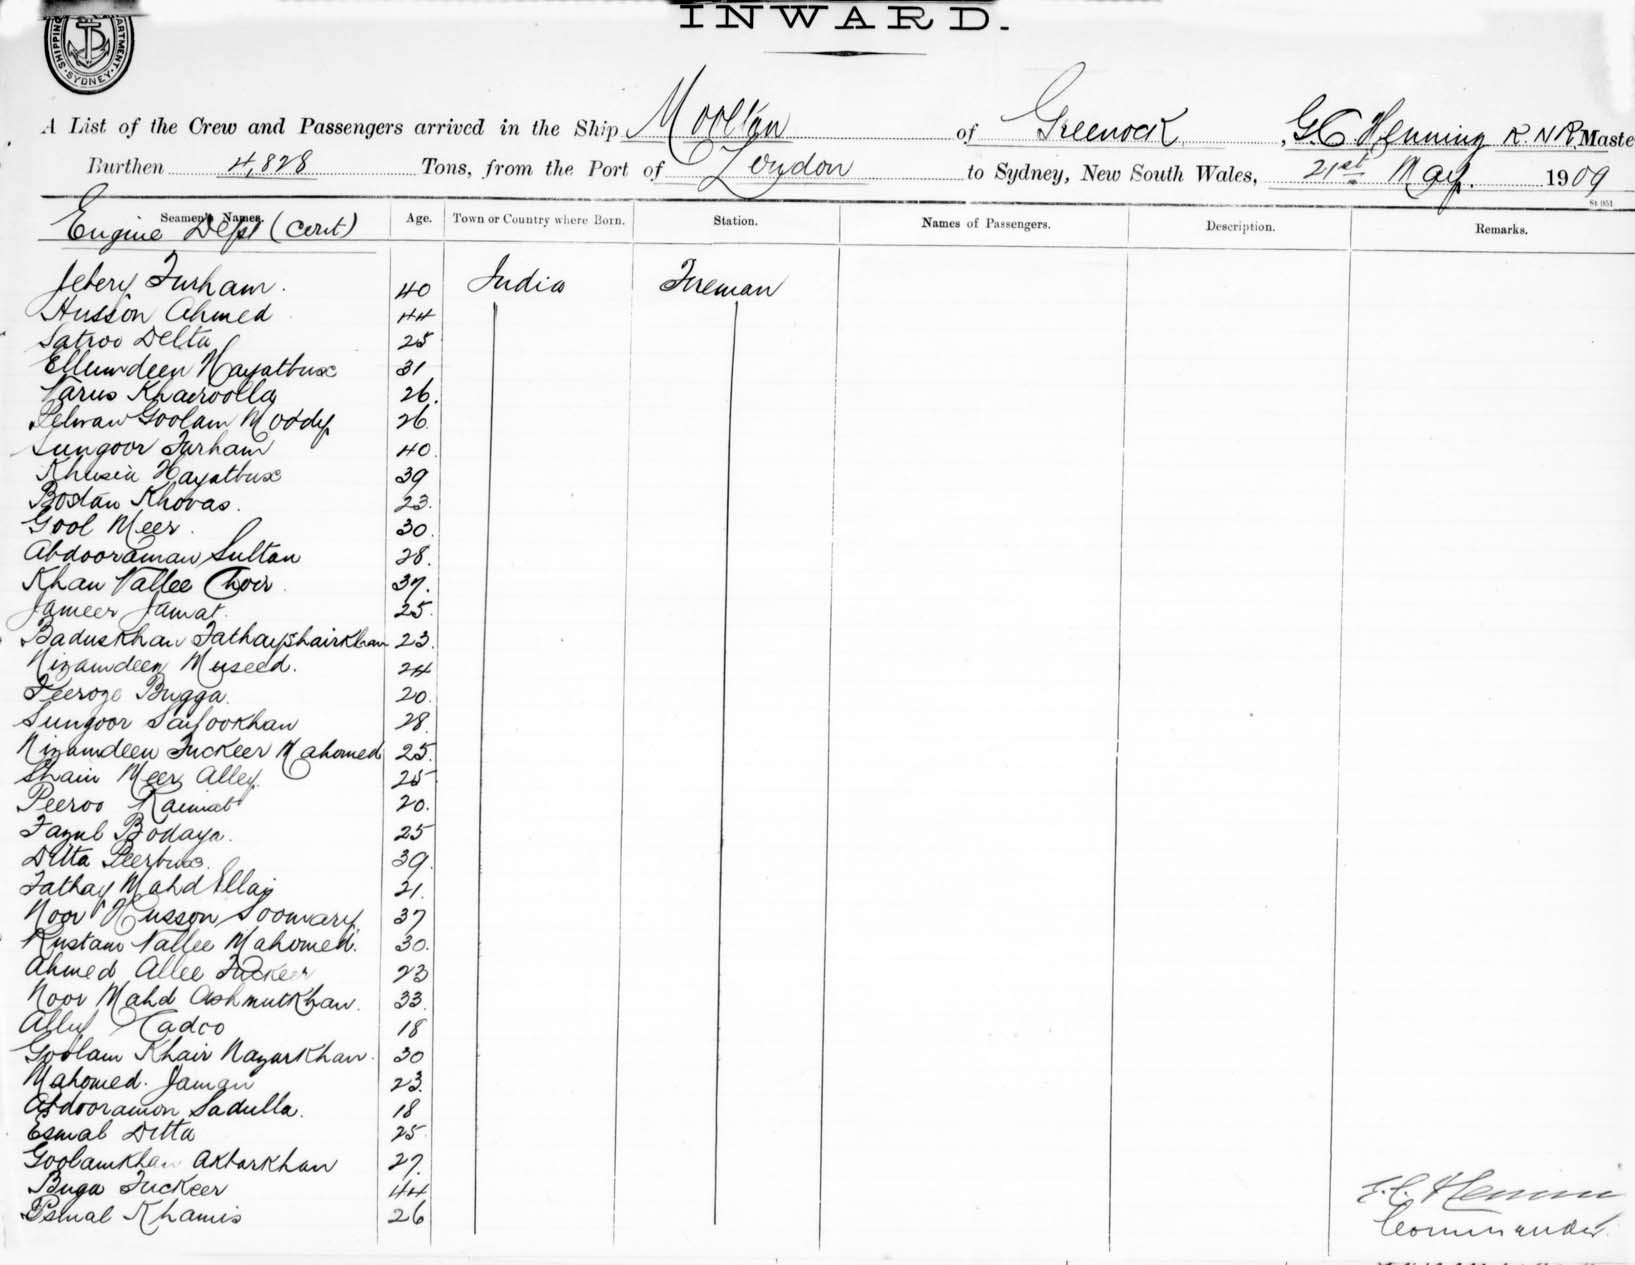 SHIPPING DEPARTMENT SYDNEY
INWARD.
A List of the Crew and Passengers arrived in the Ship Mooltan of Greenock, G C Henning R.N.R. Maste
Burthen 4,828 Tons, from the Port of London to Sydney, New South Wales, 21st May. 1909
St 951
Seamen's Names. Age. Town or Country where Born. Station. Names of Passengers. Description. Remarks.
Engine Dept (cont)
Jebery Furham. 40 India Fireman
Husson Ahmed 44
Satroo Ditta 25
Ellumdeen Hayatbux 31
Varus Khairoolla 26.
Pelwan Goolam Moddy 26.
Sungoor Furham 40.
Khusia Hayatbux 39
Bostan Khovas. 23.
Gool Meer. 30.
Abdooraman Sultan 28.
Khan Vallee 37.
Jameer Jamat. 25.
Baduskhan Fathayshairkhan 23.
Nizamdeen Museed. 24
Feeroze Bugga. 20.
Sungoor Saifookhan 28.
Nizamdeen Fuckeer Mahomed 25.
Shain Meer Alley. 25
Peeroo Raimat 20.
Fazul Bodaya. 25
Ditta Peerbux. 39.
Fathay Mahd Ellay 21.
Noor Husson Soomary. 37
Rustam Vallee Mahomed. 30.
Ahmed Allee Fuckeer 23
Noor Mahd Ashmutkhan. 33.
Ally Cadoo 18
Goolam Khair Nazurkhan. 30
Mahomed. Jaman 23.
Abdooramon Sadulla. 18
Esmal Ditta 25.
Goolamkhan Akbarkhan 27.
Buga Fuckeer 44
Esmal Khamis 26
Commander